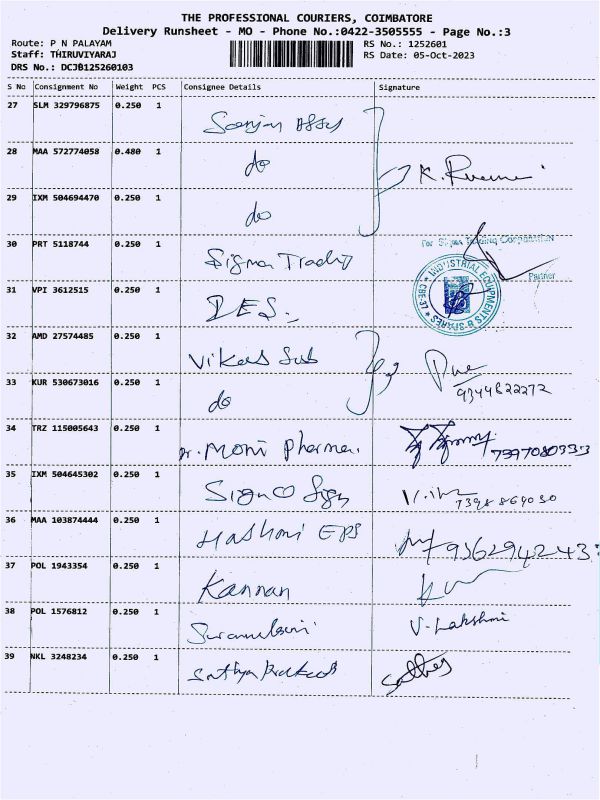 THE PROFESSIONAL COURIERS, COIMBATORE
Delivery Runsheet - MO - Phone No.:0422-3505555 - Page No.:3
Route: P N PALAYAM
RS No.: 1252601
Staff: THIRUVIYARAJ
RS Date: 05-Oct-2023
DRS No.: DCJB125260103
S No Consignment No Weight PCS Consignee Details Signature
27 SLM 329796875 0.250 1
28 MAA 572774058 0.480 1 do
29 IXM 504694470 0.250 1 do
30 PRT 5118744 0.250 1 Sigma
For Trading Corporation
Partner
31 VPI 3612515 0.250 1 DES
INDUSTRIAL EQUIPMENTS & SPARES
CBE-37
32 AMD 27574485 0.250 1 Vikas Sub
33 KUR 530673016 0.250 1 do
9344822272
34 TRZ 115005643 0.250 1 Moni Pharma.
7397080333
35 IXM 504645302 0.250 1
36 MAA 103874444 0.250 1 Hashmi
37 POL 1943354 0.250 1 Kannan
38 POL 1576812 0.250 1 V. Lakshmi
39 NKL 3248234 0.250 1 Sathya Prakash